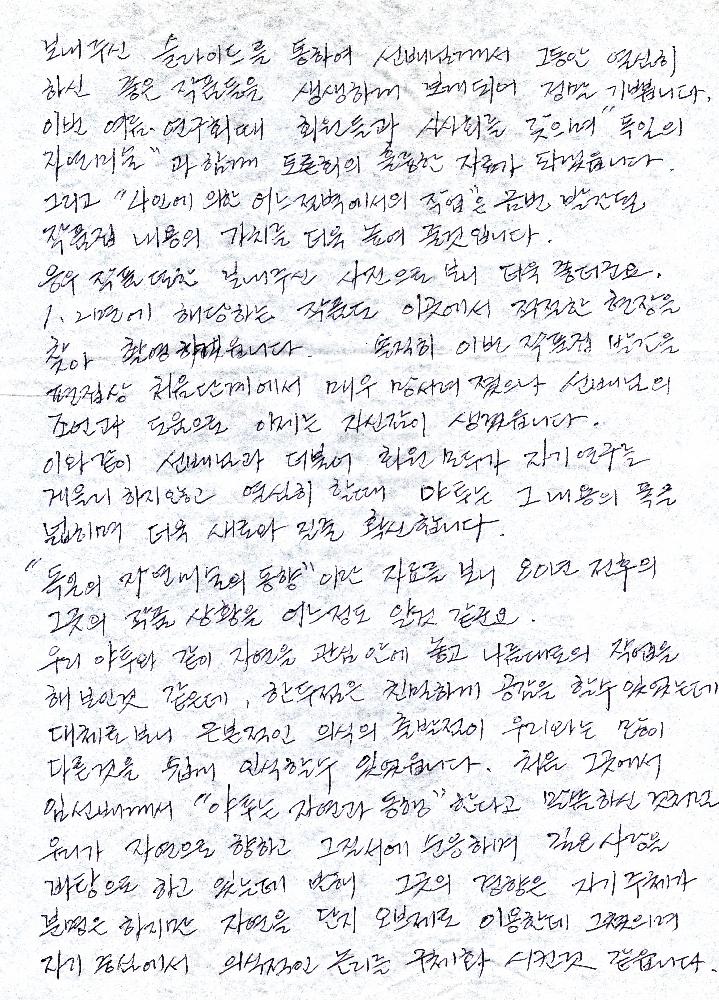 보내주신 슬라이드를 통하여 선배님께서 그동안 열심히
하신 좋은 작품들을 생생하게 보게되어 정말 기쁩니다.
이번 여름·연구회때 회원들과 시사회를 갖으며 "독일의
자연미술" 과 함께 토론회의 훌륭한 자료가 되겠읍니다.
그리고 "4인에 의한 어느절벽에서의 작업"은 금번 발간될
작품집 내용의 가치를 더욱 높여 줄것입니다.
응우 작품 또한 보내주신 사진으로 보니 더욱 좋더군요.
1. 2면에 해당하는 작품도 이곳에서 적절한 현장을
찾아 촬영하겠읍니다. 솔직히 이번 작품집 발간을
편집상 처음단계에서 매우 망서려 졌으나 선배님의
조언과 도움으로 이제는 자신감이 생겼읍니다.
이와같이 선배님과 더불어 회원 모두가 자기연구를
게을리 하지않고 열심히 할때 야투는 그 내용의 폭을
넓히며 더욱 새로와 짐을 확신합니다.
"독일의 자연미술의 동향"이란 자료를 보니 80년 전후의
그곳의 작품 상황을 어느정도 알것 같군요.
우리 야투와 같이 자연을 관심안에 놓고 나름대로의 작업을
해 보인것 같은데, 한두점은 친밀하게 공감을 할수 있었는데
대체로 보니 근본적인 의식의 출발점이 우리와는 많이
다른것을 쉽게 인식할수 있었읍니다. 처음 그곳에서
임선배께서 "야투는 자연과 동행"한다고 말씀하신 것처럼
우리가 자연으로 향하고 그질서에 순응하며 깊은 사랑을
바탕으로 하고 있는데 반해 그곳의 경향은 자기주체가
분명은 하지만 자연을 단지 오브제로 이용한데 그쳤으며
자기 중심에서 의식적인 논리를 구체화 시킨것 같읍니다.